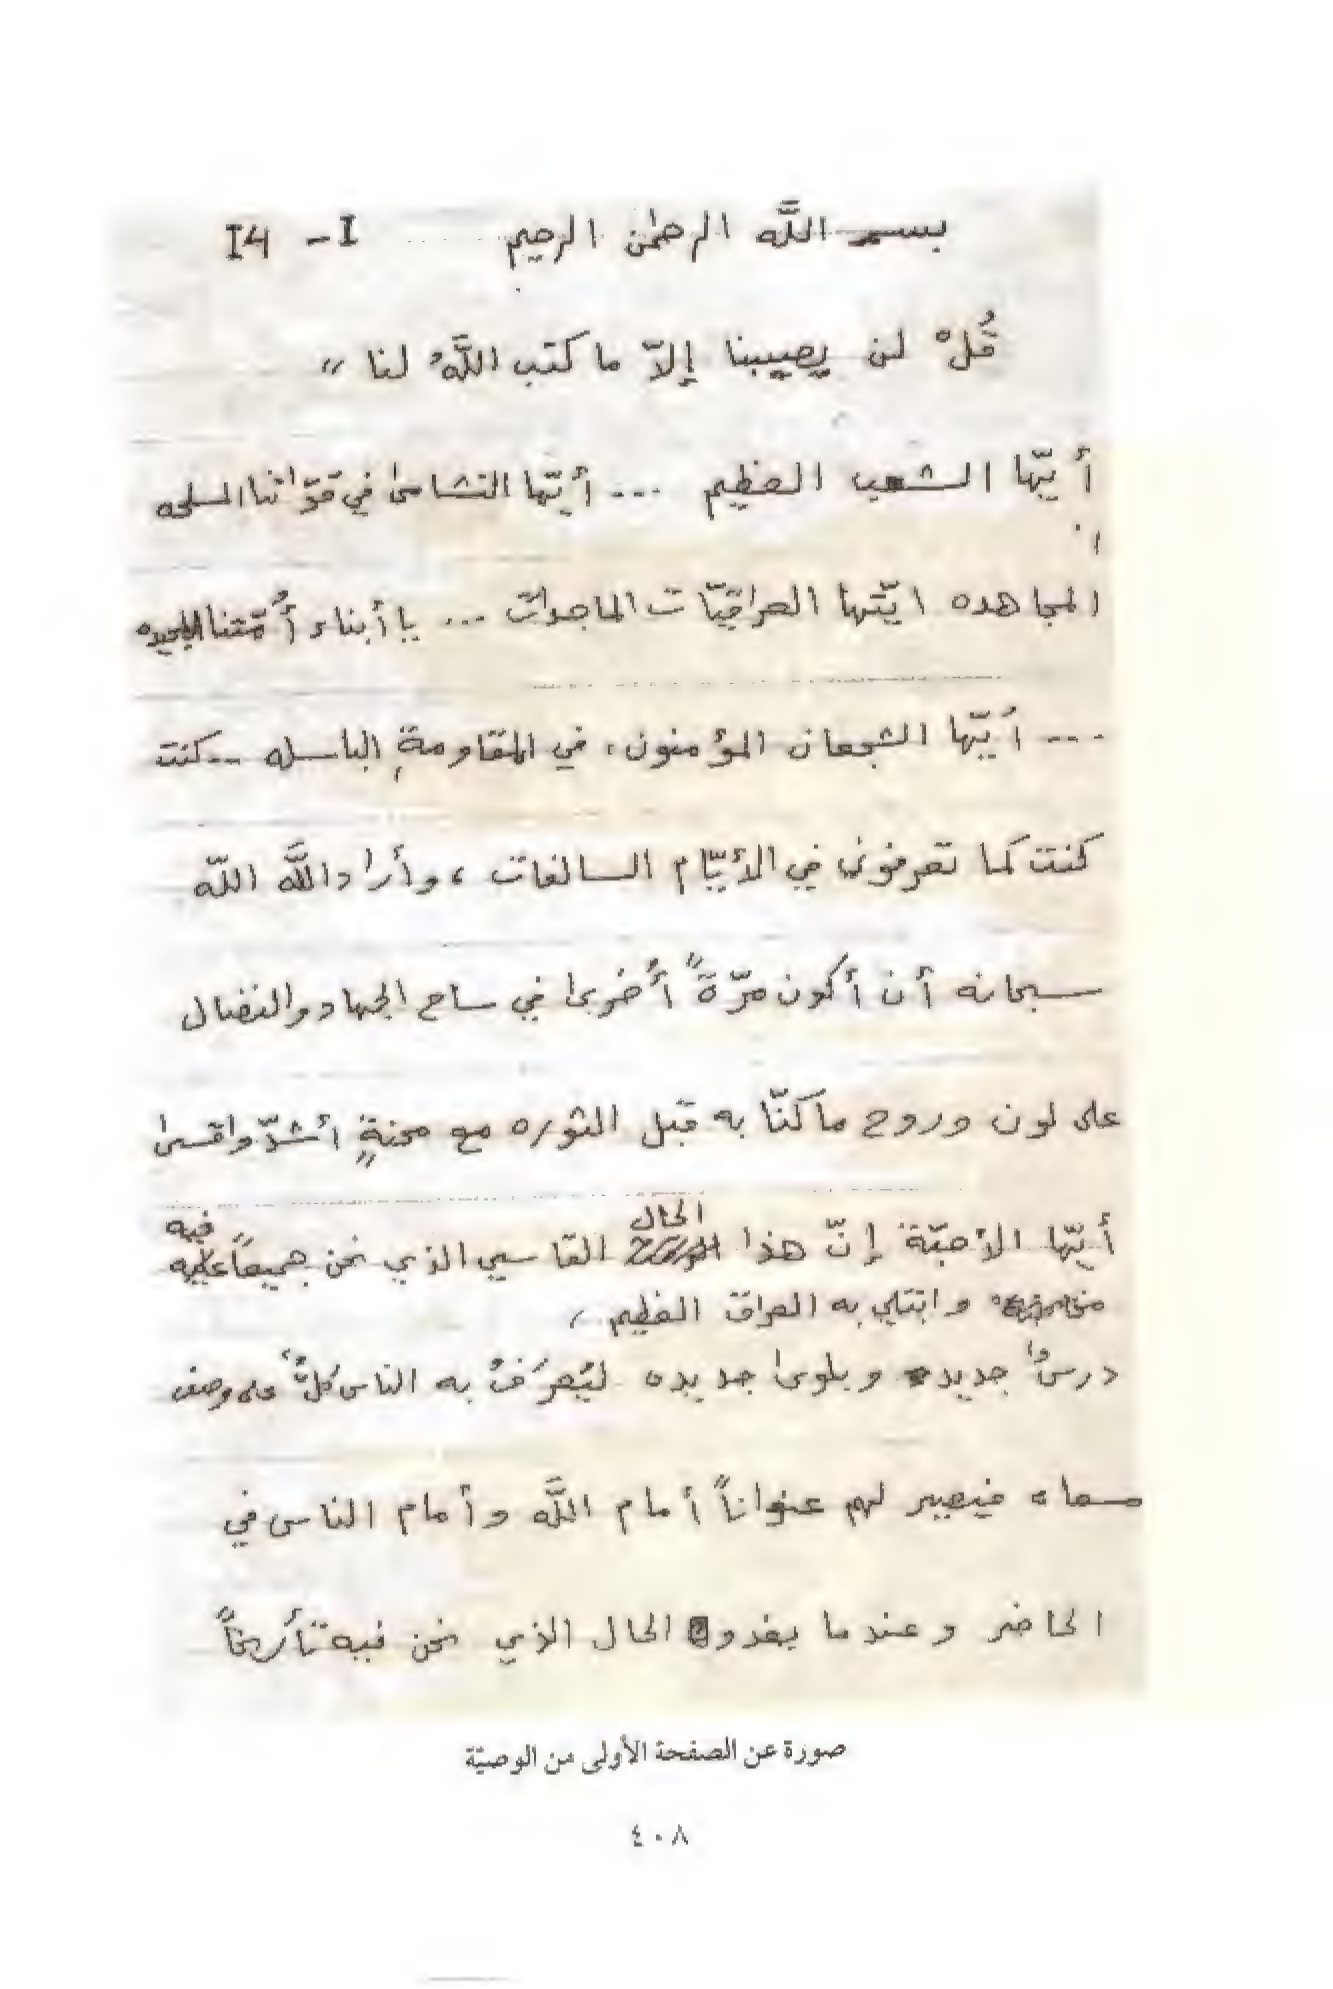 بسم الله الرحمٰن الرحيم I - I4
قُلْ لن يصيبنا إلاّ ما كتب اللّهُ لنا "
أيّها الشعب العظيم ... أيّها النشامىٰ في قوّاتنا المسلحه
المجاهده ايّتها العراقيّات الماجدات ... يا أبناء أُمّتنا المجيده
... أيّها الشجعان المؤمنون، في المقاومةِ الباسله .. كنت
كنت كما تعرفونى في الأيّام السالفات، وأراد اللّه اللّه
سبحانه أن أكون مرّةً أُخرىٰ في ساح الجهاد والنضال
على لون وروح ما كنّا به قبل الثوره مع محنةٍ أشدّ واقسىٰ
الحال فيه
أيّها الأحبّة إنّ هذا القاسي الذي نحن جميعاً عليه
وابتلي به العراق العظيم،
درسٌ جديد وبلوىٰ جديده ليُعرَفُ به الناس كلٌّ على وصف
مسعاه فيصير لهم عنواناً أمام اللّه وأمام الناس في
الحاضر وعندما يغدو الحال الذي نحن فيه تأريخاً
صورة عن الصفحة الأولى من الوصيّة
٤٠٨